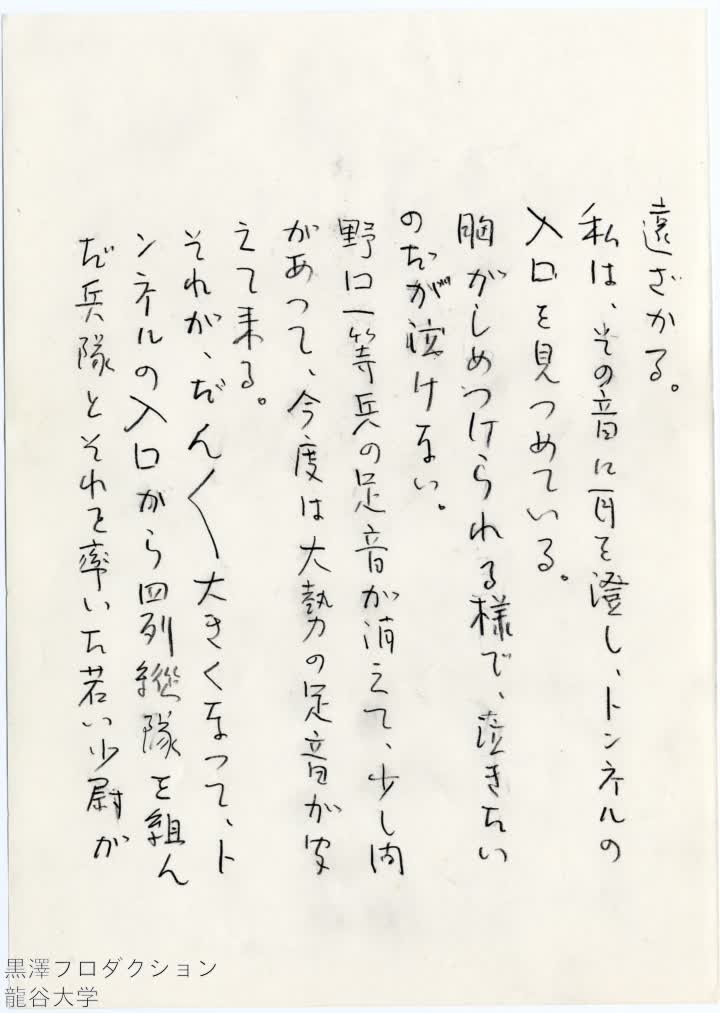 遠ざかる。
私は、その音に耳を澄し、トンネルの
入口を見つめている。
胸がしめつけられる様で、泣きたい
のだが泣けない。
野口一等兵の足音が消えて、少し間
があつて、今度は大勢の足音が聞
えて来る。
それが、だん〱大きくなつて、ト
ンネルの入口から四列縦隊を組ん
だ兵隊とそれを率いた若い少尉が
黒澤プロダクション
龍谷大学